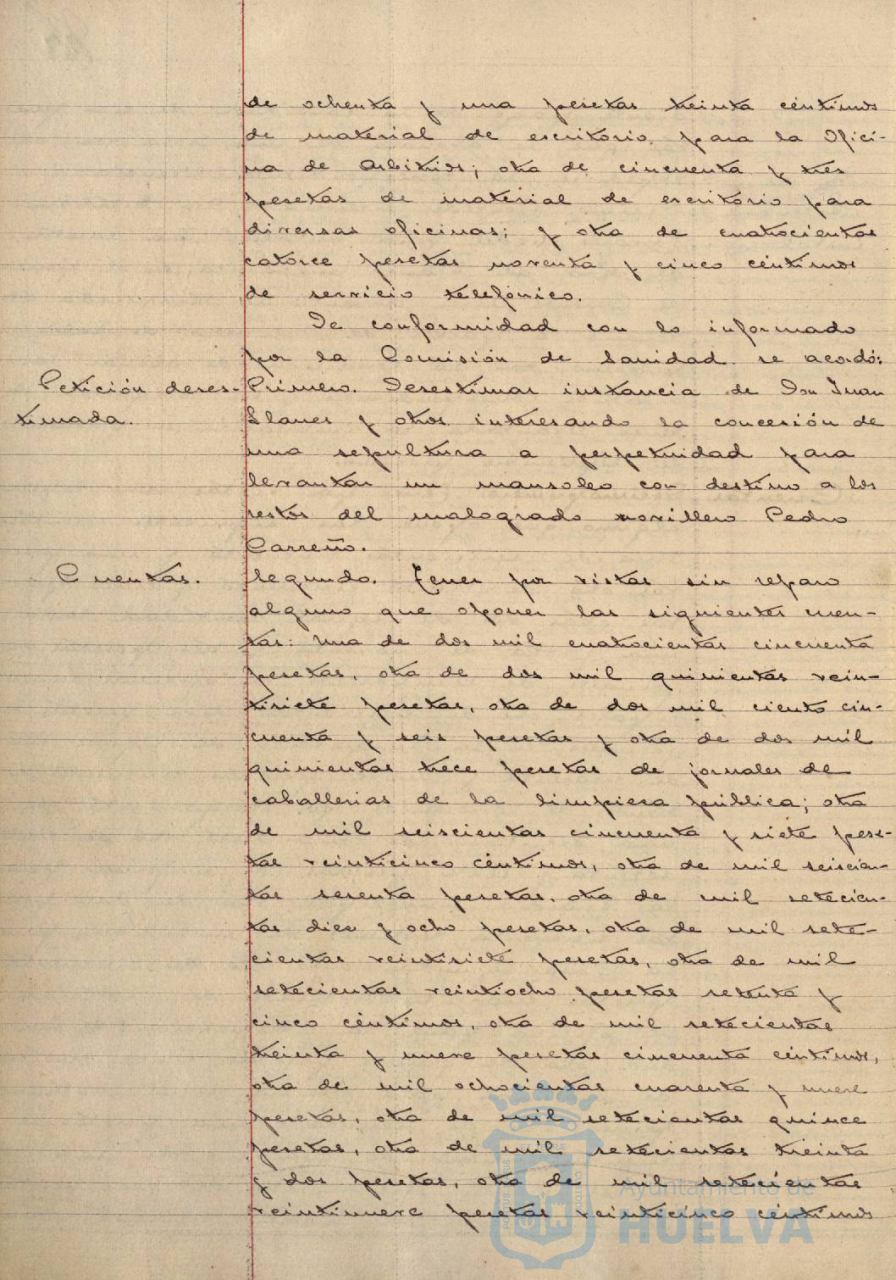 de ochenta y una pesetas treinta céntimos
de material de escritorio para la Ofici-
na de Arbitrios; otra de cincuenta y tres
pesetas de material de escritorio para
diversas oficinas; y otra de cuatrocientas
catorce pesetas noventa y cinco céntimos
de servicio telefónico.
De conformidad con lo informado
por la Comisión de Sanidad se acordó:
Petición deses-
timada.
Primero. Desestimar instancia de Don Juan
Llanes y otros interesando la concesión de
una sepultura a perpetuidad para
levantar un mansoleo con destino a los
restos del malogrado novillero Pedro
Carreño.
Cuentas.
Segundo. Tener por vistas sin reparo
alguno que oponer las siguientes cuen-
tas: una de dos mil cuatrocientas cincuenta
pesetas, otra de dos mil quinientas vein-
tisiete pesetas, otra de dos mil ciento cin-
cuenta y seis pesetas y otra de dos mil
quinientas trece pesetas de jornales de
caballerias de la limpieza pública; otra
de mil seiscientas cincuenta y siete pese-
tas veinticinco céntimos, otra de mil seiscien-
tas sesenta pesetas, otra de mil setecien-
tas diez y ocho pesetas, otra de mil sete-
cientas veintisiete pesetas, otra de mil
setecientas veintiocho pesetas setenta y
cinco céntimos, otra de mil setecientas
treinta y nueve pesetas cincuenta céntimos,
otra de mil ochocientas cuarenta y nueve
pesetas, otra de mil setecientas quince
pesetas, otra de mil setecientas treinta
y dos pesetas, otra de mil setecientas
veintinueve pesetas veinticinco céntimos
Ayuntamiento de
HUELVA